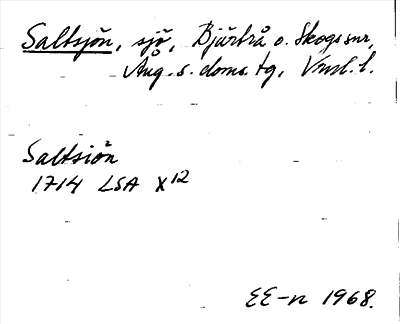 Saltsjön, sjö, Bjärtrå o. Skogs snr,
Ång. s. doms. tg, Vnrl. l.
Saltsiön
1714 LSA X12
EE-n 1968.